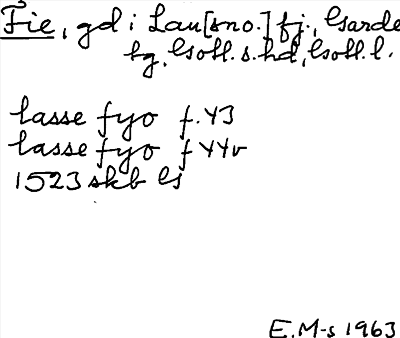 Fie, gd i Lau[sno.] fj., Garde
tg, Gotl. s. hd, Gotl. l.
lasse fyo f. 43
lasse fyo f 44v
1523 skb Gs
E. M-s 1963